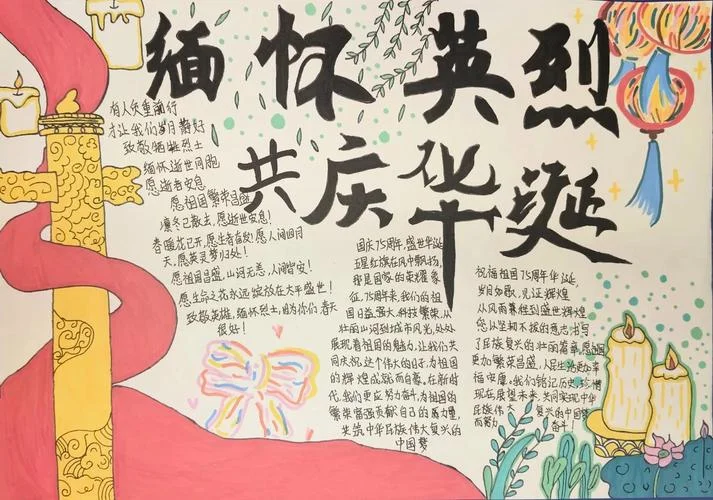 缅怀英烈
共庆华诞
有人负重前行
才让我们岁月静好
致敬牺牲烈士
缅怀逝世同胞
愿逝者安息
愿祖国繁荣昌盛
凛冬已散去,愿逝世安息!
春暖花已开,愿生者奋发!愿人间四月
天,愿英灵梦归处!
愿祖国昌盛,山河无恙,人间皆安!
愿生命之花永远绽放在太平盛世!
致敬英雄,缅怀烈士,因为你们,春天
很好!
国庆75周年,盛世华诞
五星红旗在风中飘扬,
那是国家的荣耀象
征,75周年来,我们的祖
国日益强大,科技繁荣,从
壮丽山河到城市风光,处处
展现着祖国的魅力,让我们共
同庆祝这个伟大的日子,为祖国
的辉煌成就而自豪,在新时
代,我们更应努力奋斗,为祖国的
繁荣富强贡献自己的力量,
共筑中华民族伟大复兴的
中国梦
祝福祖国75周年华诞,
岁月如歌,见证辉煌
从风雨兼程到盛世辉煌
您从坚韧不拔的意志,书写
了民族复兴的壮丽篇章,愿祖国
更加繁荣昌盛,人民生活更加幸
福安康。我们铭记历史,珍惜
现在,展望未来,共同实现中华
民族伟大 复兴的中国梦
而努力 奋斗!